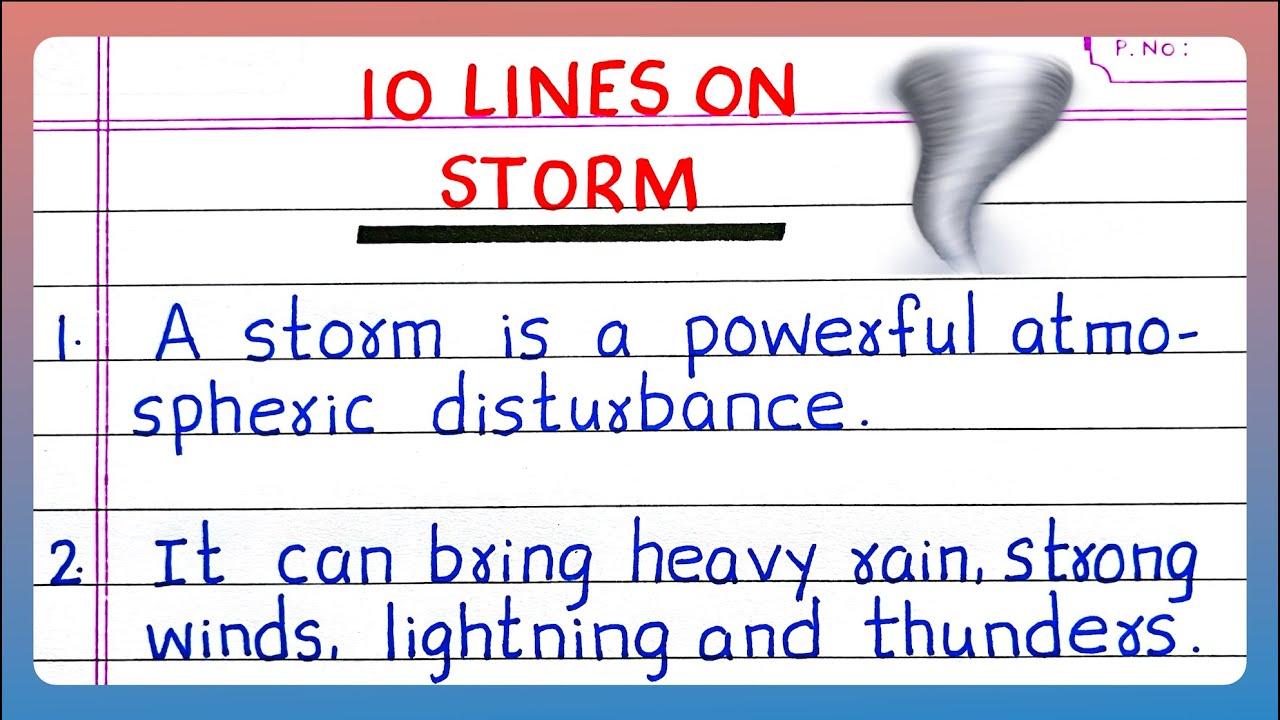 P. No:
10 LINES ON
STORM
1. A storm is a powerful atmo-
spheric disturbance.
2. It can bring heavy rain, strong
winds, lightning and thunders.